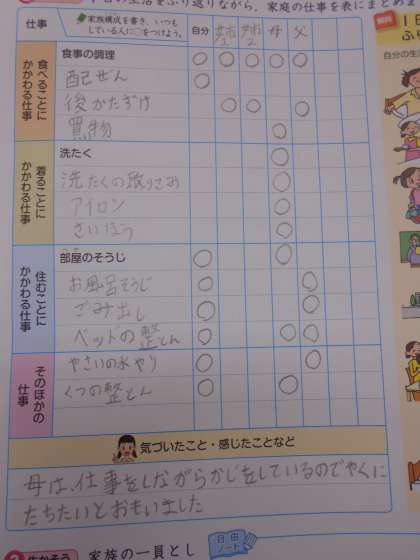 の生活をふり返りながら、家庭の仕事を表にまとめま
仕事
家族構成を書き、いつも
している人に○をつけよう。
自分 姉1 姉2 母 父
食べることに
かかわる仕事
食事の調理 ○ ○ ○ ○ ○
配ぜん ○
後かたずけ ○ ○ ○
買物 ○
着ることに
かかわる仕事
洗たく ○
洗たくの取りこみ ○
アイロン ○
さいほう ○
住むことに
かかわる仕事
部屋のそうじ ○ ○
お風呂そうじ ○ ○
ごみ出し ○ ○
ベッドの整とん ○ ○ ○
そのほかの
仕事
やさいの水やり ○ ○
くつの整とん ○ ○
気づいたこと・感じたことなど
母は、仕事をしながらかじをしているのでやくに
たちたいとおもいました
2 生かそう 家族の一員とし
自由
ノート
解説
1日
ふり
自分の生活